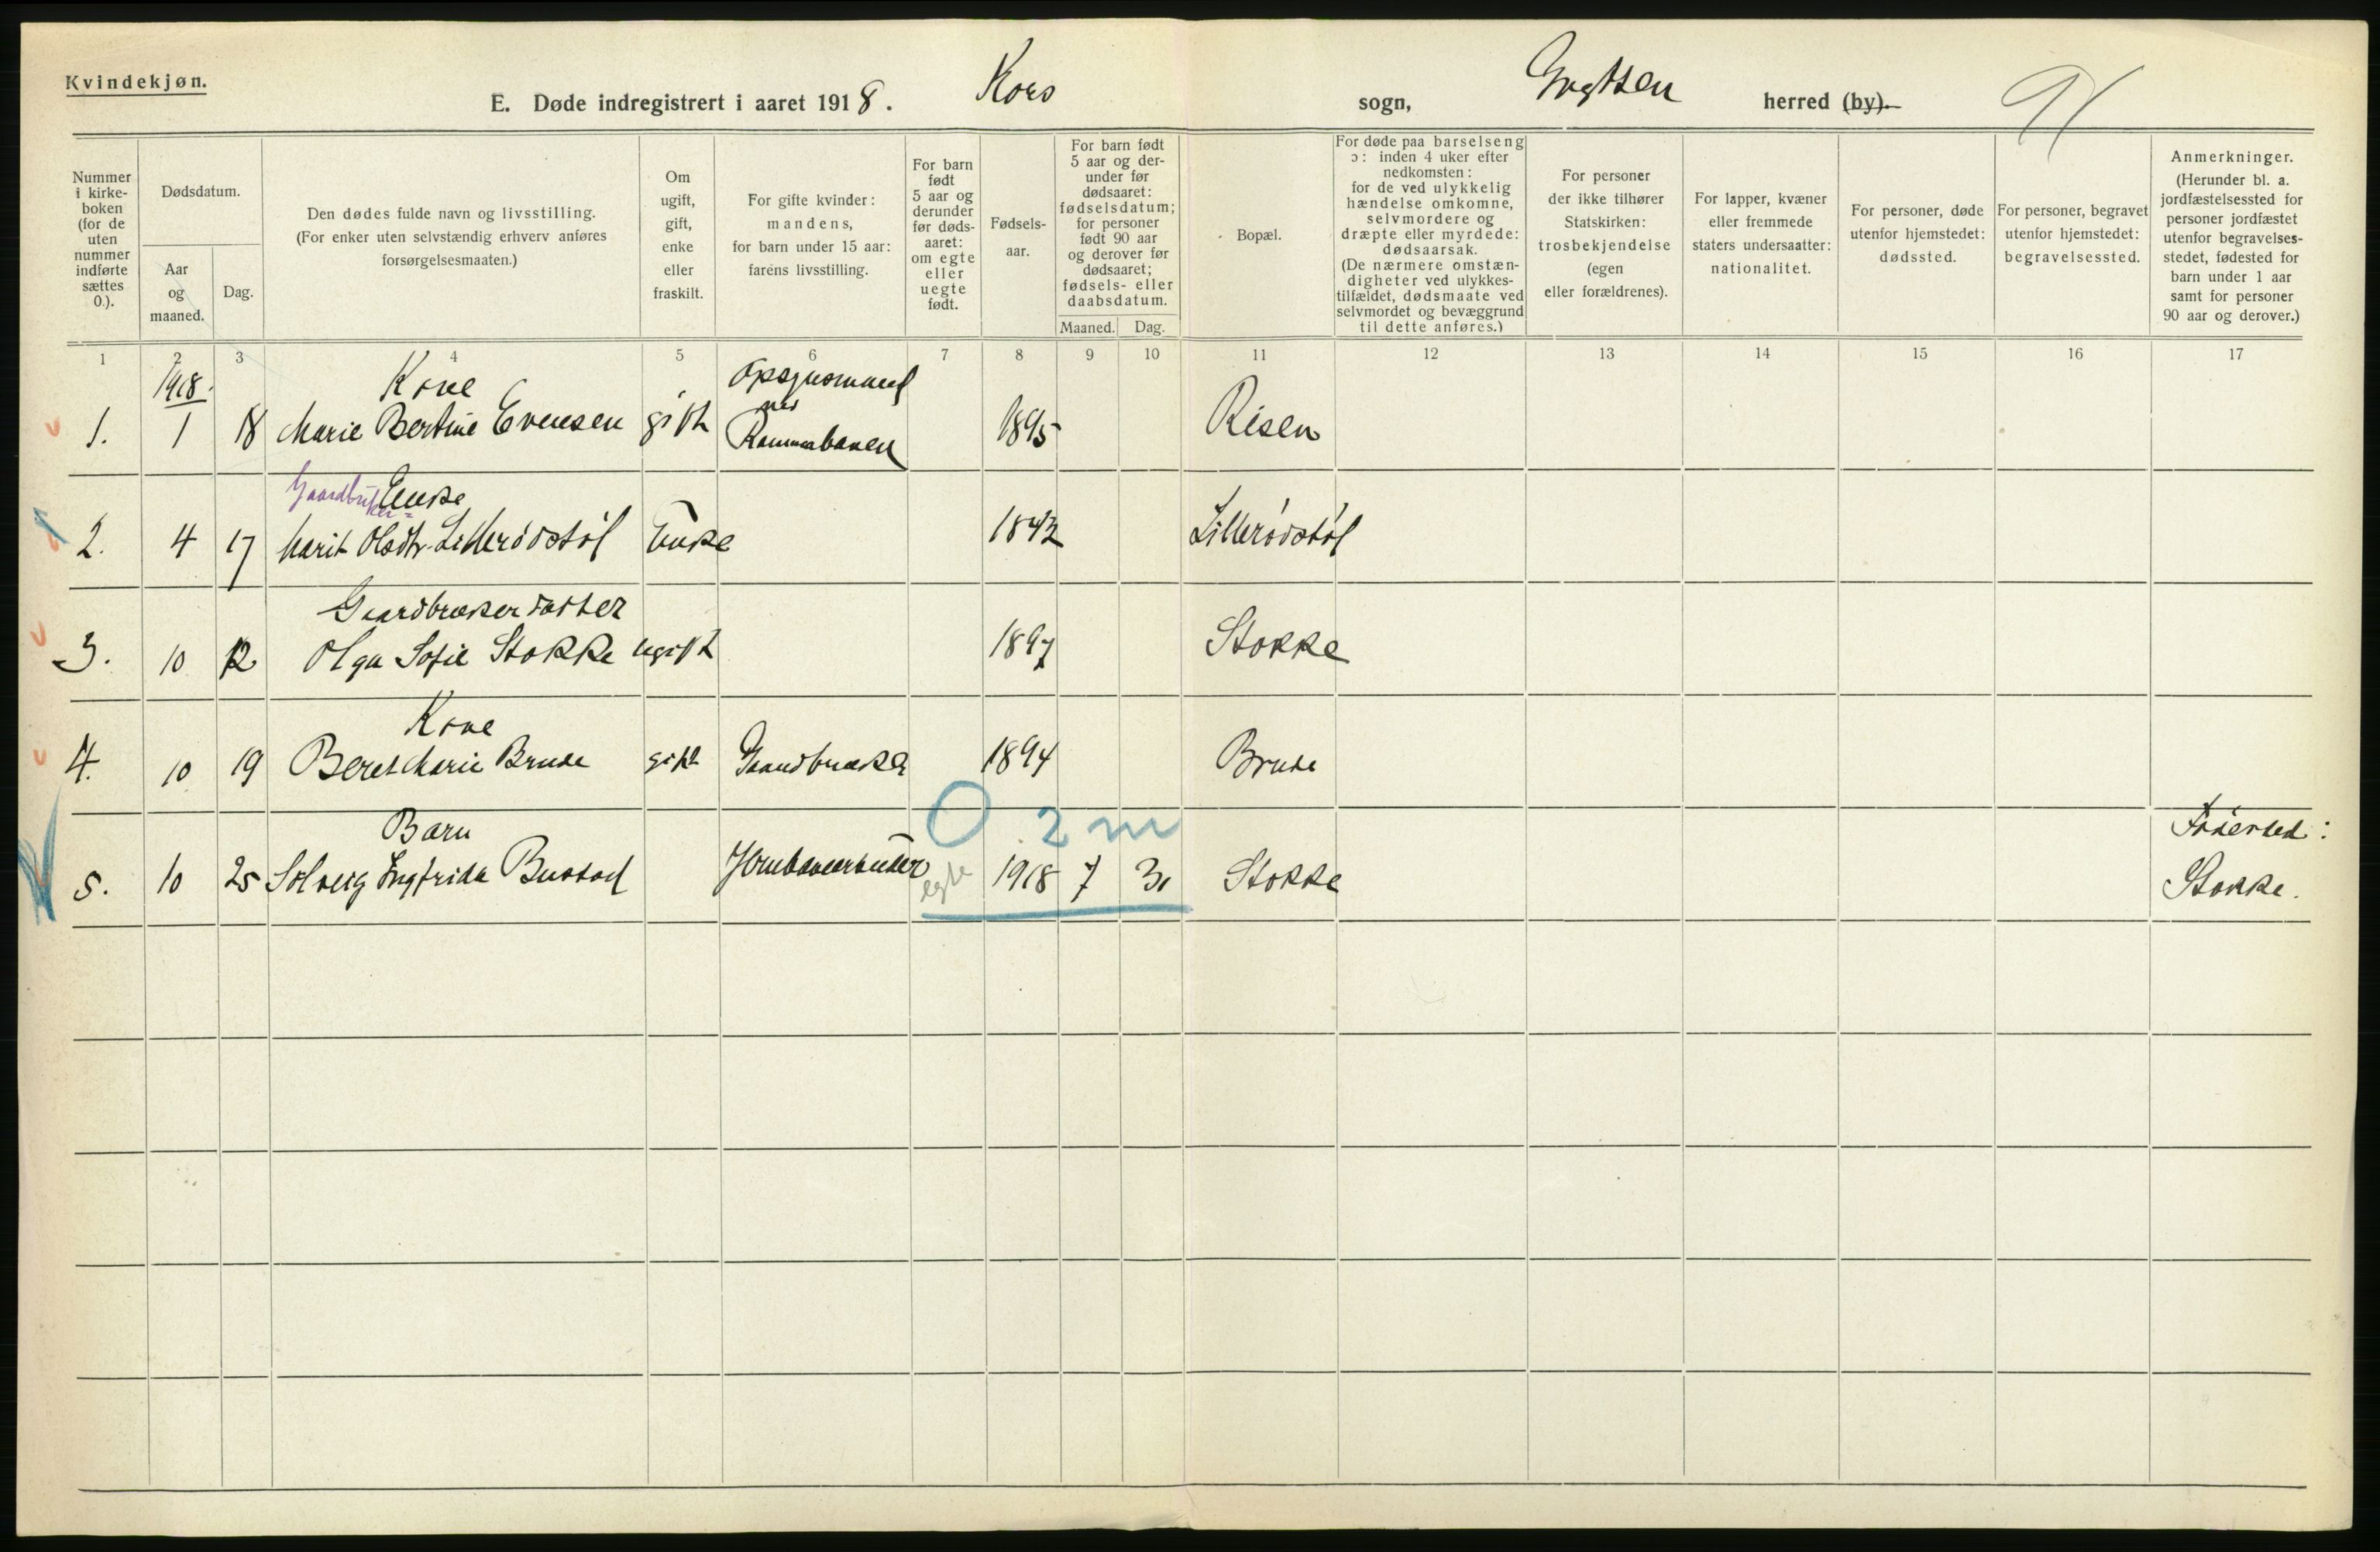 Kvindekjøn.
E. Døde indregistrert i aaret 1918. Kors sogn, Grytten herred (by).
91
Nummer i kirke- boken (for de uten nummer indførte sættes 0.).
Dødsdatum.
Aar og maaned.
Dag.
Den dødes fulde navn og livsstilling.
(For enker uten selvstændig erhverv anføres forsørgelsesmaaten.)
Om ugift, gift, enke eller fraskilt.
For gifte kvinder: mandens, for barn under 15 aar: farens livsstilling.
For barn født 5 aar og derunder før døds- aaret: om egte eller uegte født.
Fødsels- aar.
For barn født 5 aar og der- under før dødsaaret: fødselsdatum; for personer født 90 aar og derover før dødsaaret; fødsels- eller daabsdatum.
Maaned. Dag.
Bopæl.
For døde paa barselseng ɔ: inden 4 uker efter nedkomsten: for de ved ulykkelig hændelse omkomne, selvmordere og dræpte eller myrdede: dødsaarsak. (De nærmere omstæn- digheter ved ulykkes- tilfældet, dødsmaate ved selvmordet og bevæggrund til dette anføres.)
For personer der ikke tilhører Statskirken: trosbekjendelse (egen eller forældrenes).
For lapper, kvæner eller fremmede staters undersaatter: nationalitet.
For personer, døde utenfor hjemstedet: dødssted.
For personer, begravet utenfor hjemstedet: begravelsessted.
Anmerkninger. (Herunder bl. a. jordfæstelsessted for personer jordfæstet utenfor begravelses- stedet, fødested for barn under 1 aar samt for personer 90 aar og derover.)
1 2 3 4 5 6 7 8 9 10 11 12 13 14 15 16 17
1918. Kone Opsynsmand ved
1. 1 18 Marie Bertine Evensen gift Raumabanen 1895 Risen
Gaardbruker= Enke
2. 4 17 Marit Olsdtr. Lillerødstøl Enke 1843 Lillerødstøl
Gaardbrukerdatter
3. 10 12 Olga Sofie Stokke ugift 1897 Stokke
Kone
4. 10 19 Beret Marie Brude gift Gaardbruker 1894 Brude
Barn 0. 2 m Fødested:
5. 10 25 Solveig Ingfrida Bustad Jernbanearbeider egte 1918 7 31 Stokke Stokke.